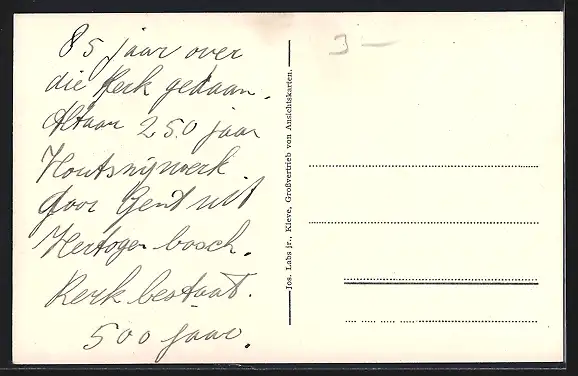 85 jaar over
die Kerk gedaan.
Altaar 250 jaar
Houtsnijwerk
door Gent uit
Hertogenbosch.
Kerk bestaat.
500 jaar.
Jos. Labs jr., Kleve, Großvertrieb von Ansichtskarten.
3 —